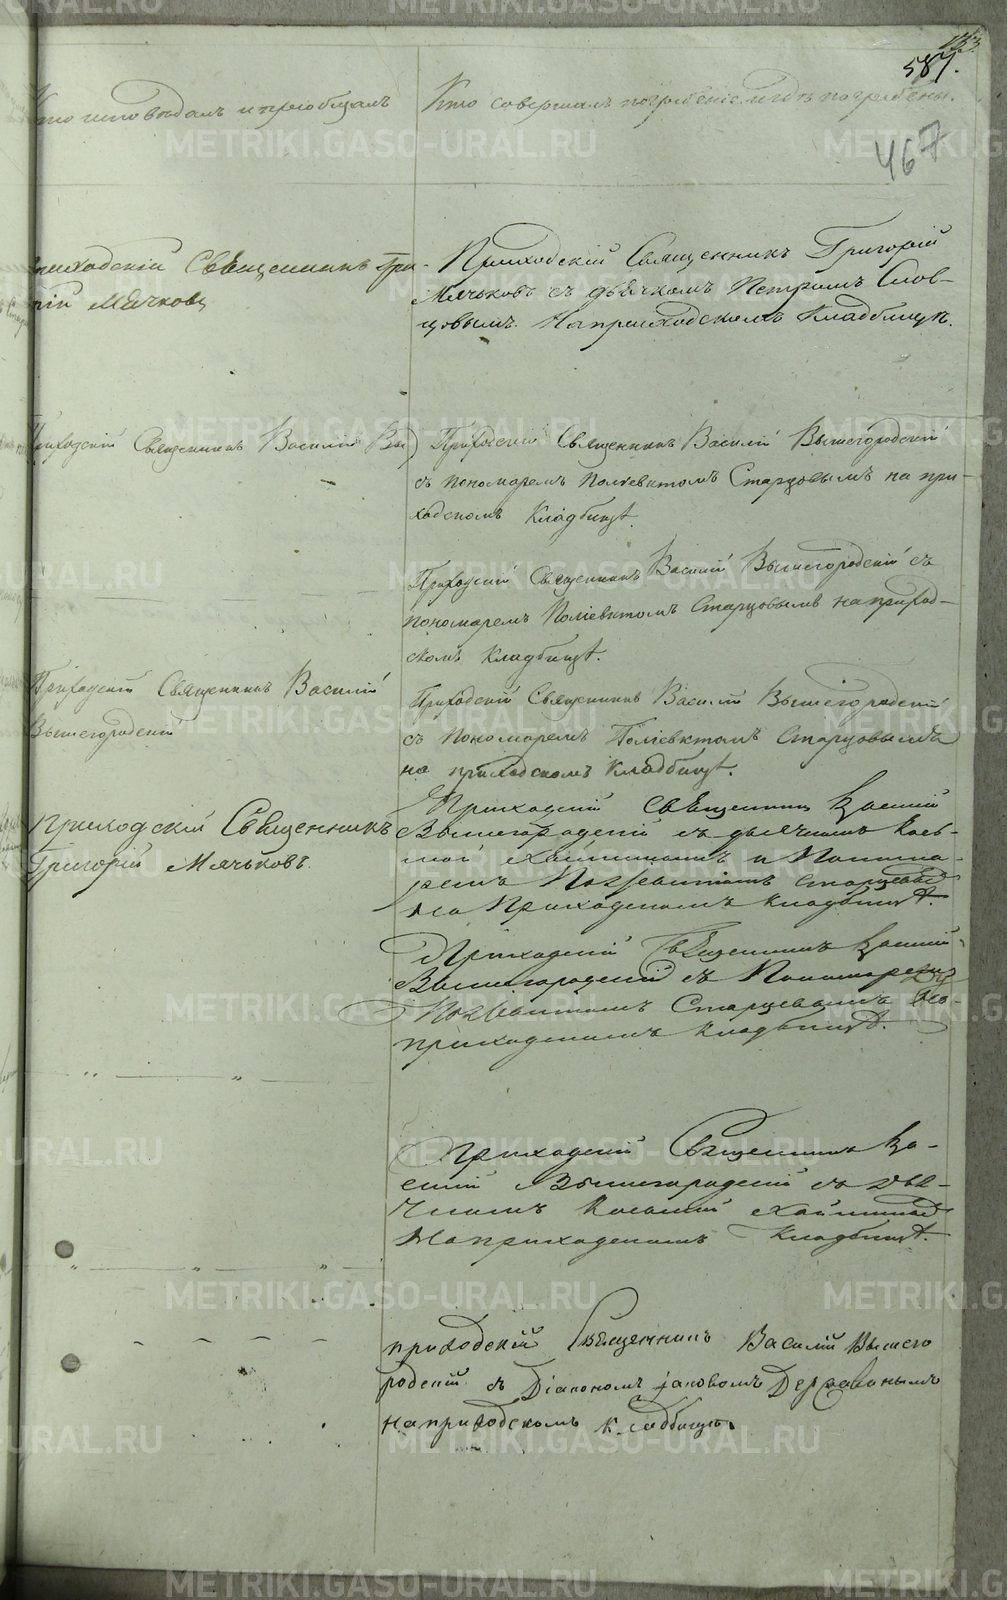 133.
587.
467
Кто исповѣдалъ и пріобщалъ
Кто совершалъ погребеніе и гдѣ погребены.
Приходскій Священникъ Гри-
рій Мячковъ
Приходскій Священникъ Григорій
Мячьковъ съ дьячкомъ Петромъ Слов-
цовымъ. На приходскомъ Кладбищѣ.
Приходскій Священникъ Василій Вы
Приходскій Священникъ Василій Вышегородскій
съ пономаремъ Поліевктомъ Старцовымъ на при-
ходскомъ Кладбищѣ.
Приходскій Священникъ Василій Вышегородскій съ
пономаремъ Поліевктомъ Старцовымъ на приход-
скомъ Кладбищѣ.
Приходскій Священникъ Василій
Вышегородскій
Приходскій Священникъ Василій Вышегородскій
съ пономаремъ Поліевктомъ Старцовымъ
на приходскомъ Кладбищѣ.
Приходскій Священникъ
Григорій Мячьковъ.
Приходскій Священникъ Василій
Вышегородскій съ дьячкомъ Кось-
мой и Понома-
ремъ Поліевктомъ Старцевымъ
на Приходскомъ Кладбищѣ.
Приходскій Священникъ Василій
Вышегородскій съ Пономаремъ
Поліевктомъ Старцевымъ На-
приходскомъ Кладбищѣ.
Приходскій Священникъ Ва-
силій Вышегородскій съ дья-
чкомъ Косьмой
На приходскомъ Кладбищѣ.
приходскій Священникъ Василій Вышего
родскій съ Діакономъ Іаковомъ Державинымъ
на приходскомъ Кладбищѣ.
METRIKI.GASO-URAL.RU